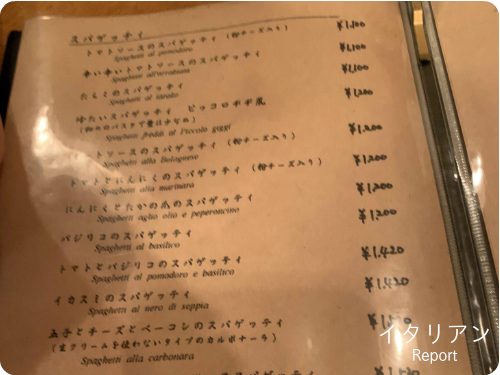 スパゲッティ
トマトソースのスパゲッティ (粉チーズ入り) ¥1,100
Spaghetti al pomodoro
辛い辛いトマトソースのスパゲッティ ¥1,100
Spaghetti all'arrabiata
たらこのスパゲッティ ¥1,100
Spaghetti al tarako
冷たいスパゲッティ ピッコロギギ風 ¥1,200
(細めのパスタで量は少なめ)
Spaghetti freddi al Piccolo giggi
ソースのスパゲッティ (粉チーズ入り) ¥1,200
Spaghetti alla Bolognese
トマトとにんにくのスパゲッティ (粉チーズ入り) ¥1,200
Spaghetti alla marinara
にんにくとたかの爪のスパゲッティ ¥1,200
Spaghetti aglio olio e peperoncino
バジリコのスパゲッティ ¥1,200
Spaghetti al basilico
トマトとバジリコのスパゲッティ ¥1,420
Spaghetti al pomodoro e basilico
イカスミのスパゲッティ ¥1,420
Spaghetti al nero di seppia
玉子とチーズとベーコンのスパゲッティ
(生クリームを使わないタイプのカルボナーラ)
Spaghetti alla carbonara
のスパゲッティ
イタリアン
Report